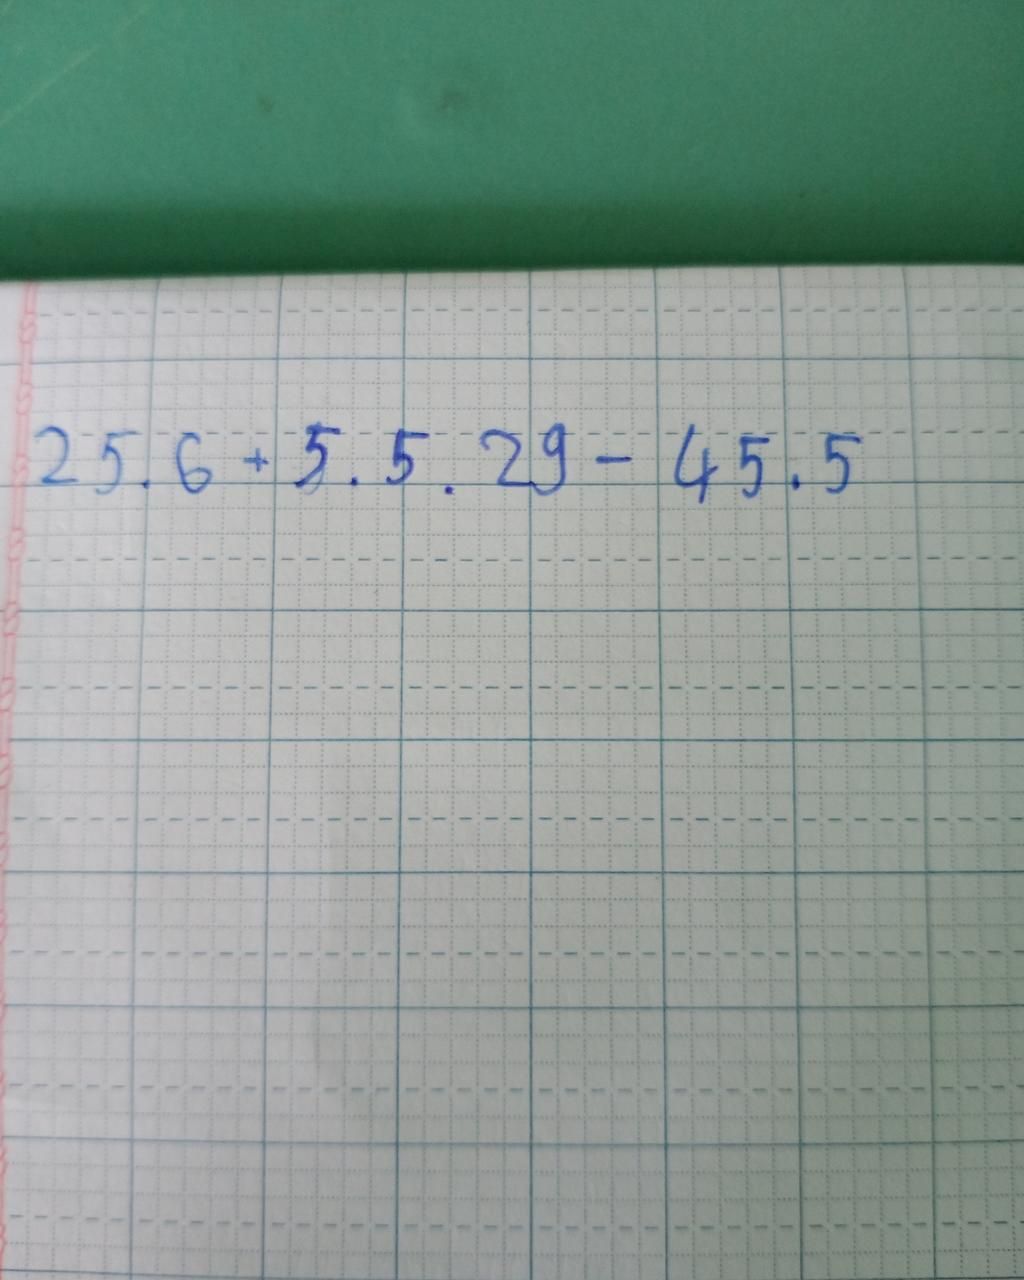 25.6 + 5.5.29 - 45.5